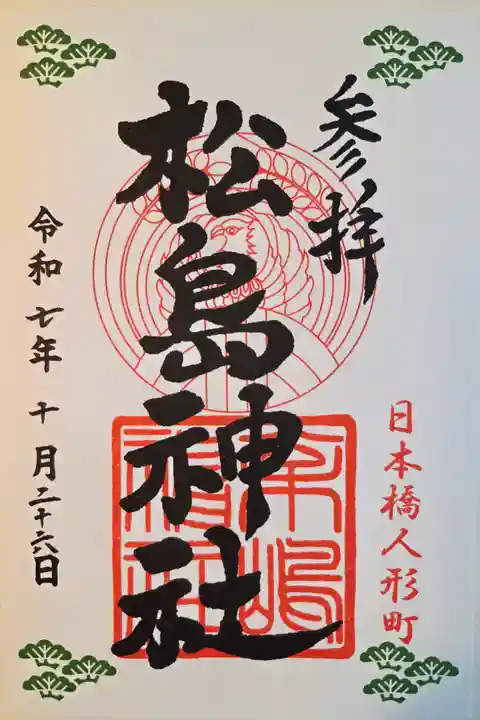 参拝
日本橋人形町
松島神社
令和七年十月二十六日